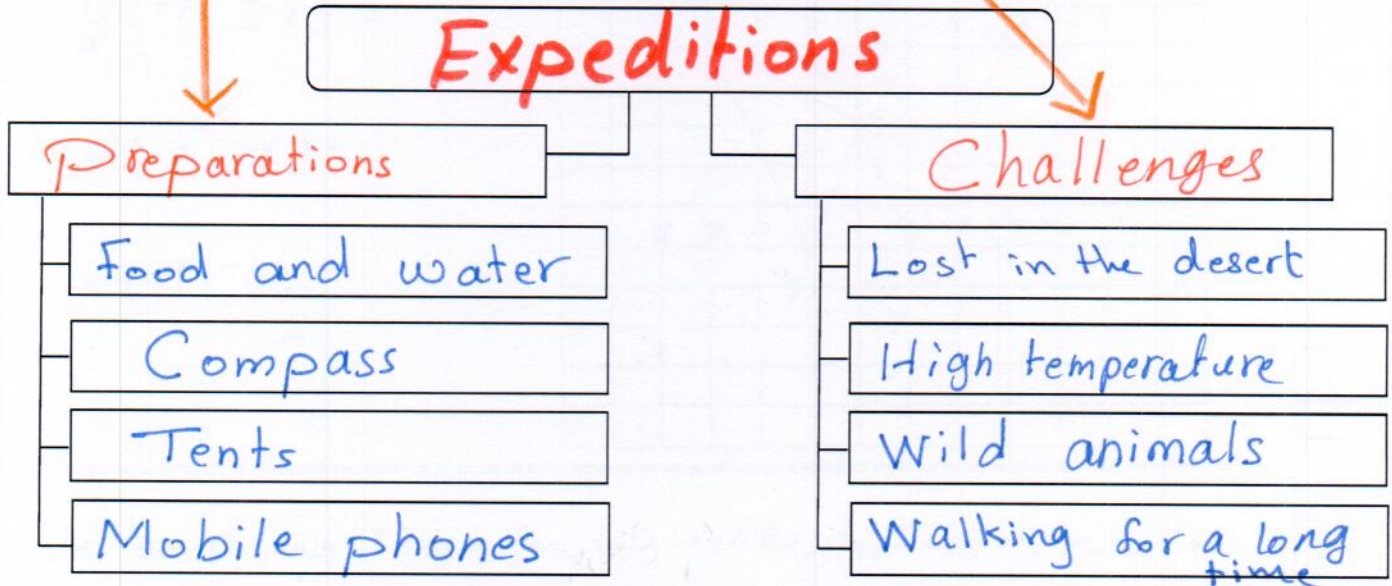 Expeditions
Preparations
Challenges
Food and water
Compass
Tents
Mobile phones
Lost in the desert
High temperature
Wild animals
Walking for a long
time